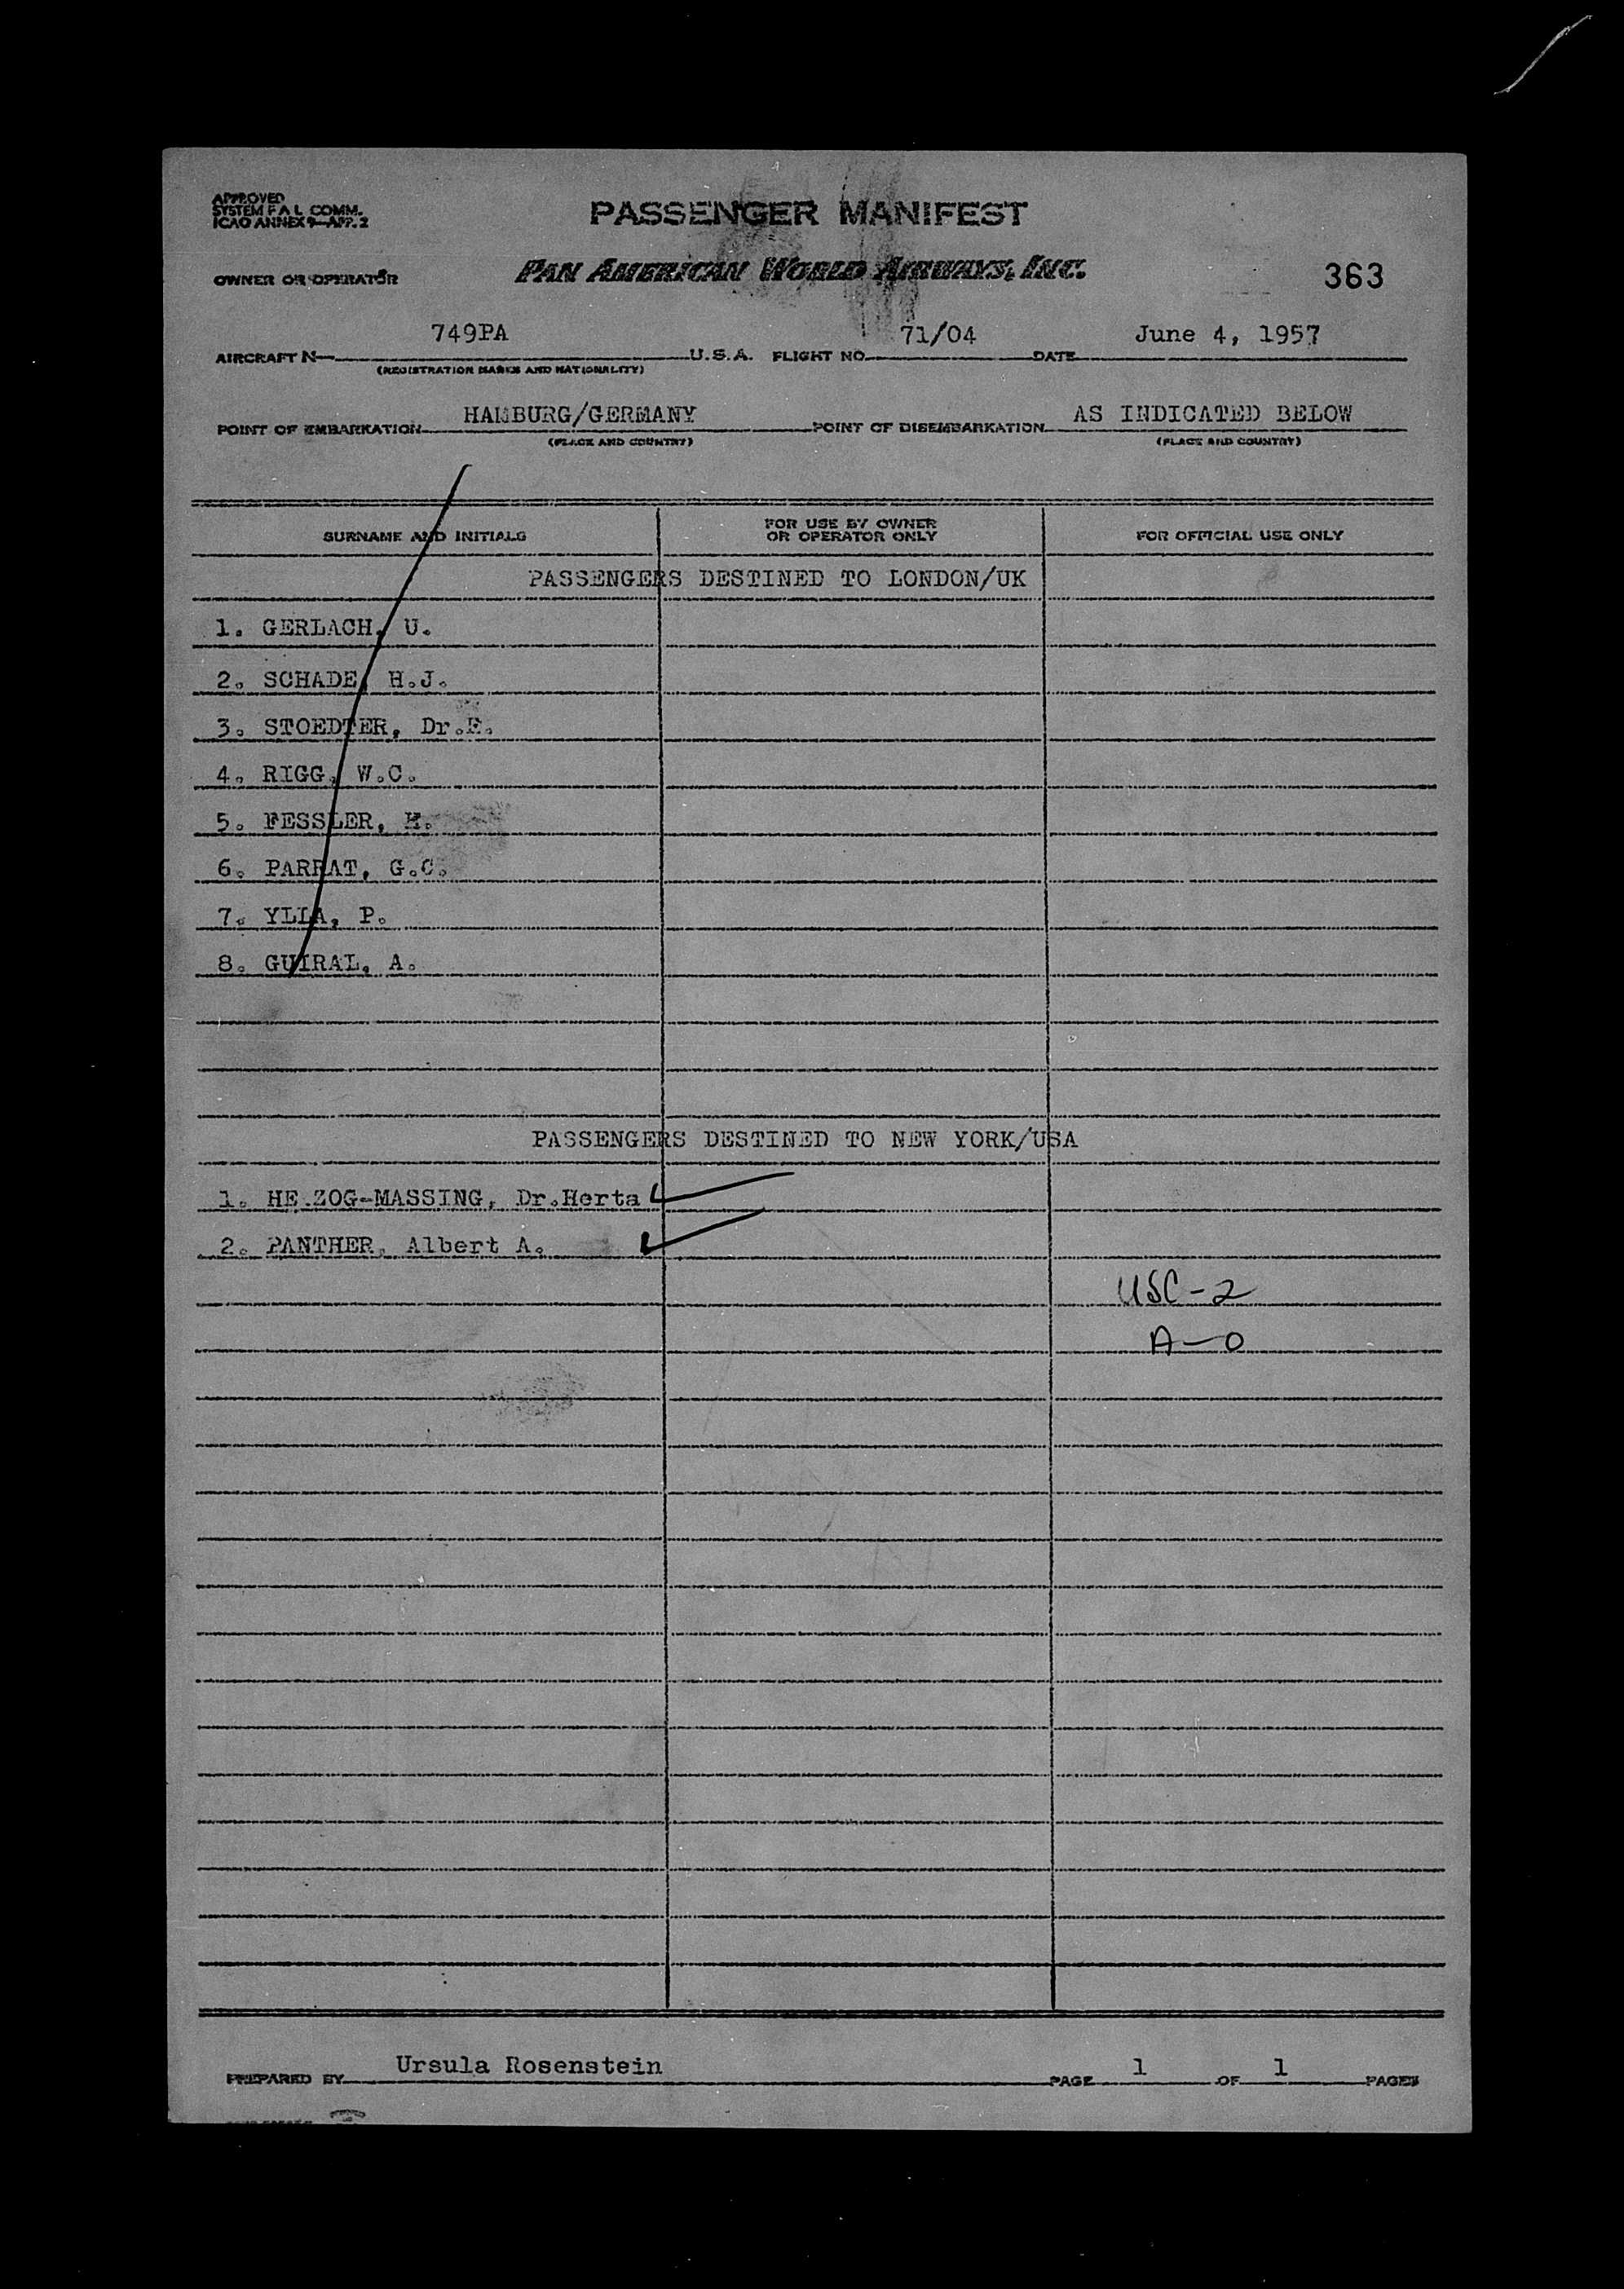 APPROVED
SYSTEM F A L COMM.
ICAO ANNEX 9—APP. 2
PASSENGER MANIFEST
OWNER OR OPERATOR PAN AMERICAN WORLD AIRWAYS, INC. 363
AIRCRAFT N— 749PA U.S.A. FLIGHT NO. 71/04 DATE June 4, 1957
(REGISTRATION MARKS AND NATIONALITY)
POINT OF EMBARKATION HAMBURG/GERMANY POINT OF DISEMBARKATION AS INDICATED BELOW
(PLACE AND COUNTRY) (PLACE AND COUNTRY)
SURNAME AND INITIALS FOR USE BY OWNER OR OPERATOR ONLY FOR OFFICIAL USE ONLY
PASSENGERS DESTINED TO LONDON/UK
1. GERLACH, U.
2. SCHADE, H.J.
3. STOEDTER, Dr.
4. RIGG, W.C.
5. FESSLER, H.
6. PARRAT, G.C.
7. YLLA, P.
8. GUIRAL, A.
PASSENGERS DESTINED TO NEW YORK/USA
1. HE.ZOG-MASSING, Dr.Herta
2. PANTHER, Albert A.
USC-2
A-0
PREPARED BY Ursula Rosenstein PAGE 1 OF 1 PAGES